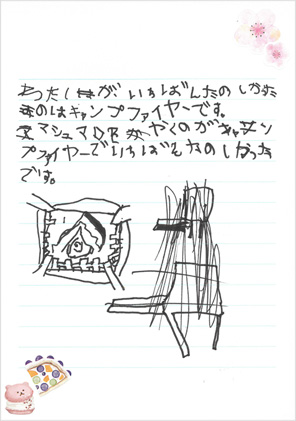 わたしがいちばんたのしかった
のはキャンプファイヤーです。
マシュマロをやくのがキャン
プファイヤーでいちばんたのしかった
です。